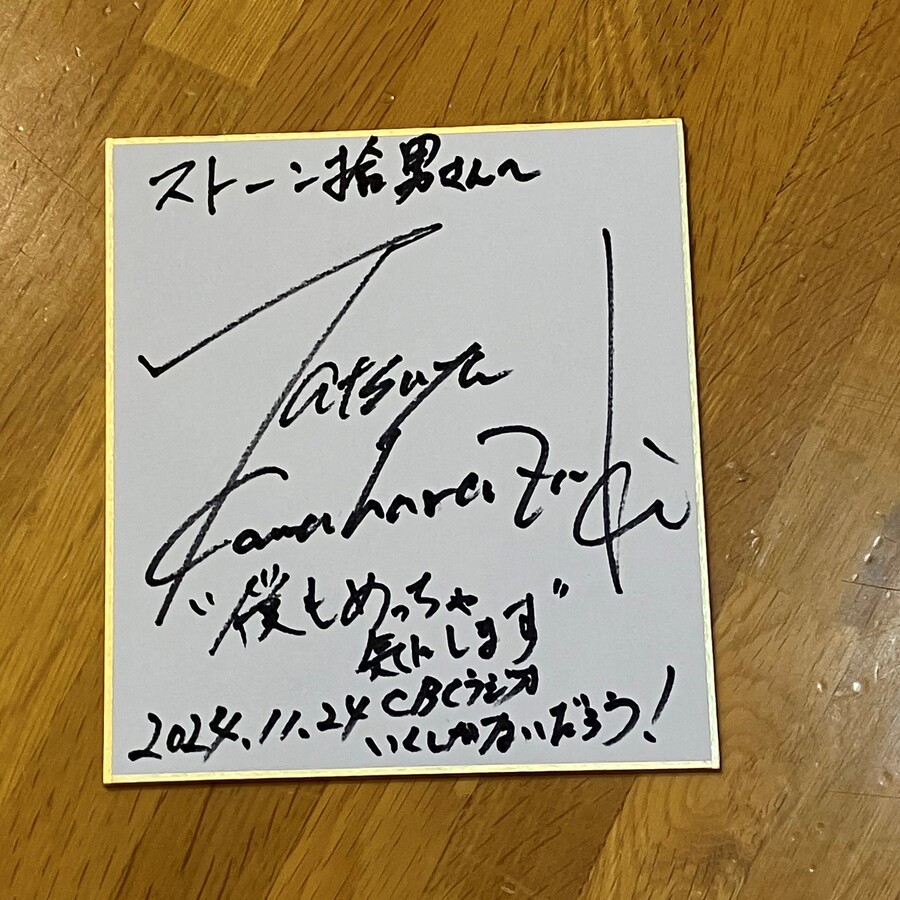 ストーン捨男さんへ
Tatsuya
Kawaharazuki
"僕もめっちゃ
気にします"
2024.11.24 CBCラジオ
いくしかないだろう!